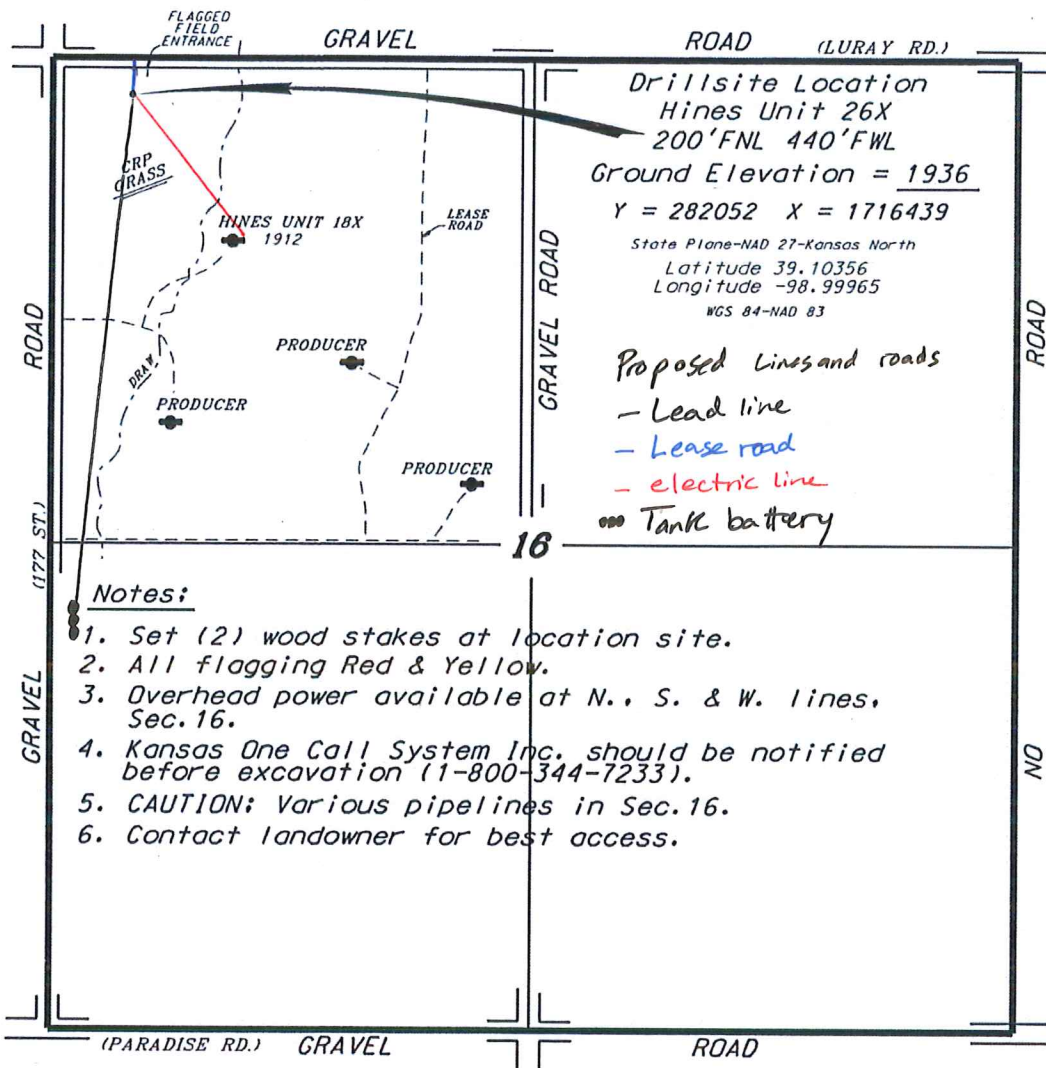 FLAGGED
FIELD
ENTRANCE
GRAVEL
ROAD (LURAY RD.)
Drillsite Location
Hines Unit 26X
200'FNL 440'FWL
Ground Elevation = 1936
Y = 282052 X = 1716439
State Plane-NAD 27-Kansas North
Latitude 39.10356
Longitude -98.99965
WGS 84-NAD 83
CRP
GRASS
HINES UNIT 18X
1912
LEASE
ROAD
GRAVEL ROAD
ROAD
ROAD
PRODUCER
DRAW
PRODUCER
PRODUCER
Proposed Lines and roads
- Lead line
- Lease road
- electric line
Tank battery
16
(177 ST.)
GRAVEL
NO
Notes:
1. Set (2) wood stakes at location site.
2. All flagging Red & Yellow.
3. Overhead power available at N., S. & W. lines,
Sec. 16.
4. Kansas One Call System Inc. should be notified
before excavation (1-800-344-7233).
5. CAUTION: Various pipelines in Sec. 16.
6. Contact landowner for best access.
(PARADISE RD.) GRAVEL
ROAD